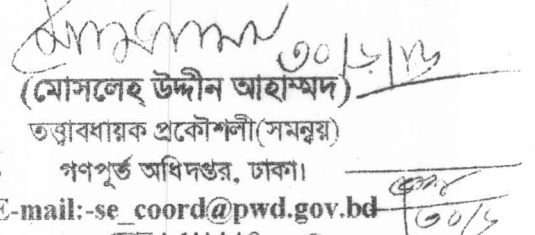 ৩০/৬/১৬
(মোসলেহ উদ্দীন আহাম্মদ)
তত্ত্বাবধায়ক প্রকৌশলী(সমন্বয়)
গণপূর্ত অধিদপ্তর, ঢাকা।
E-mail:-se_coord@pwd.gov.bd
৩০/৬